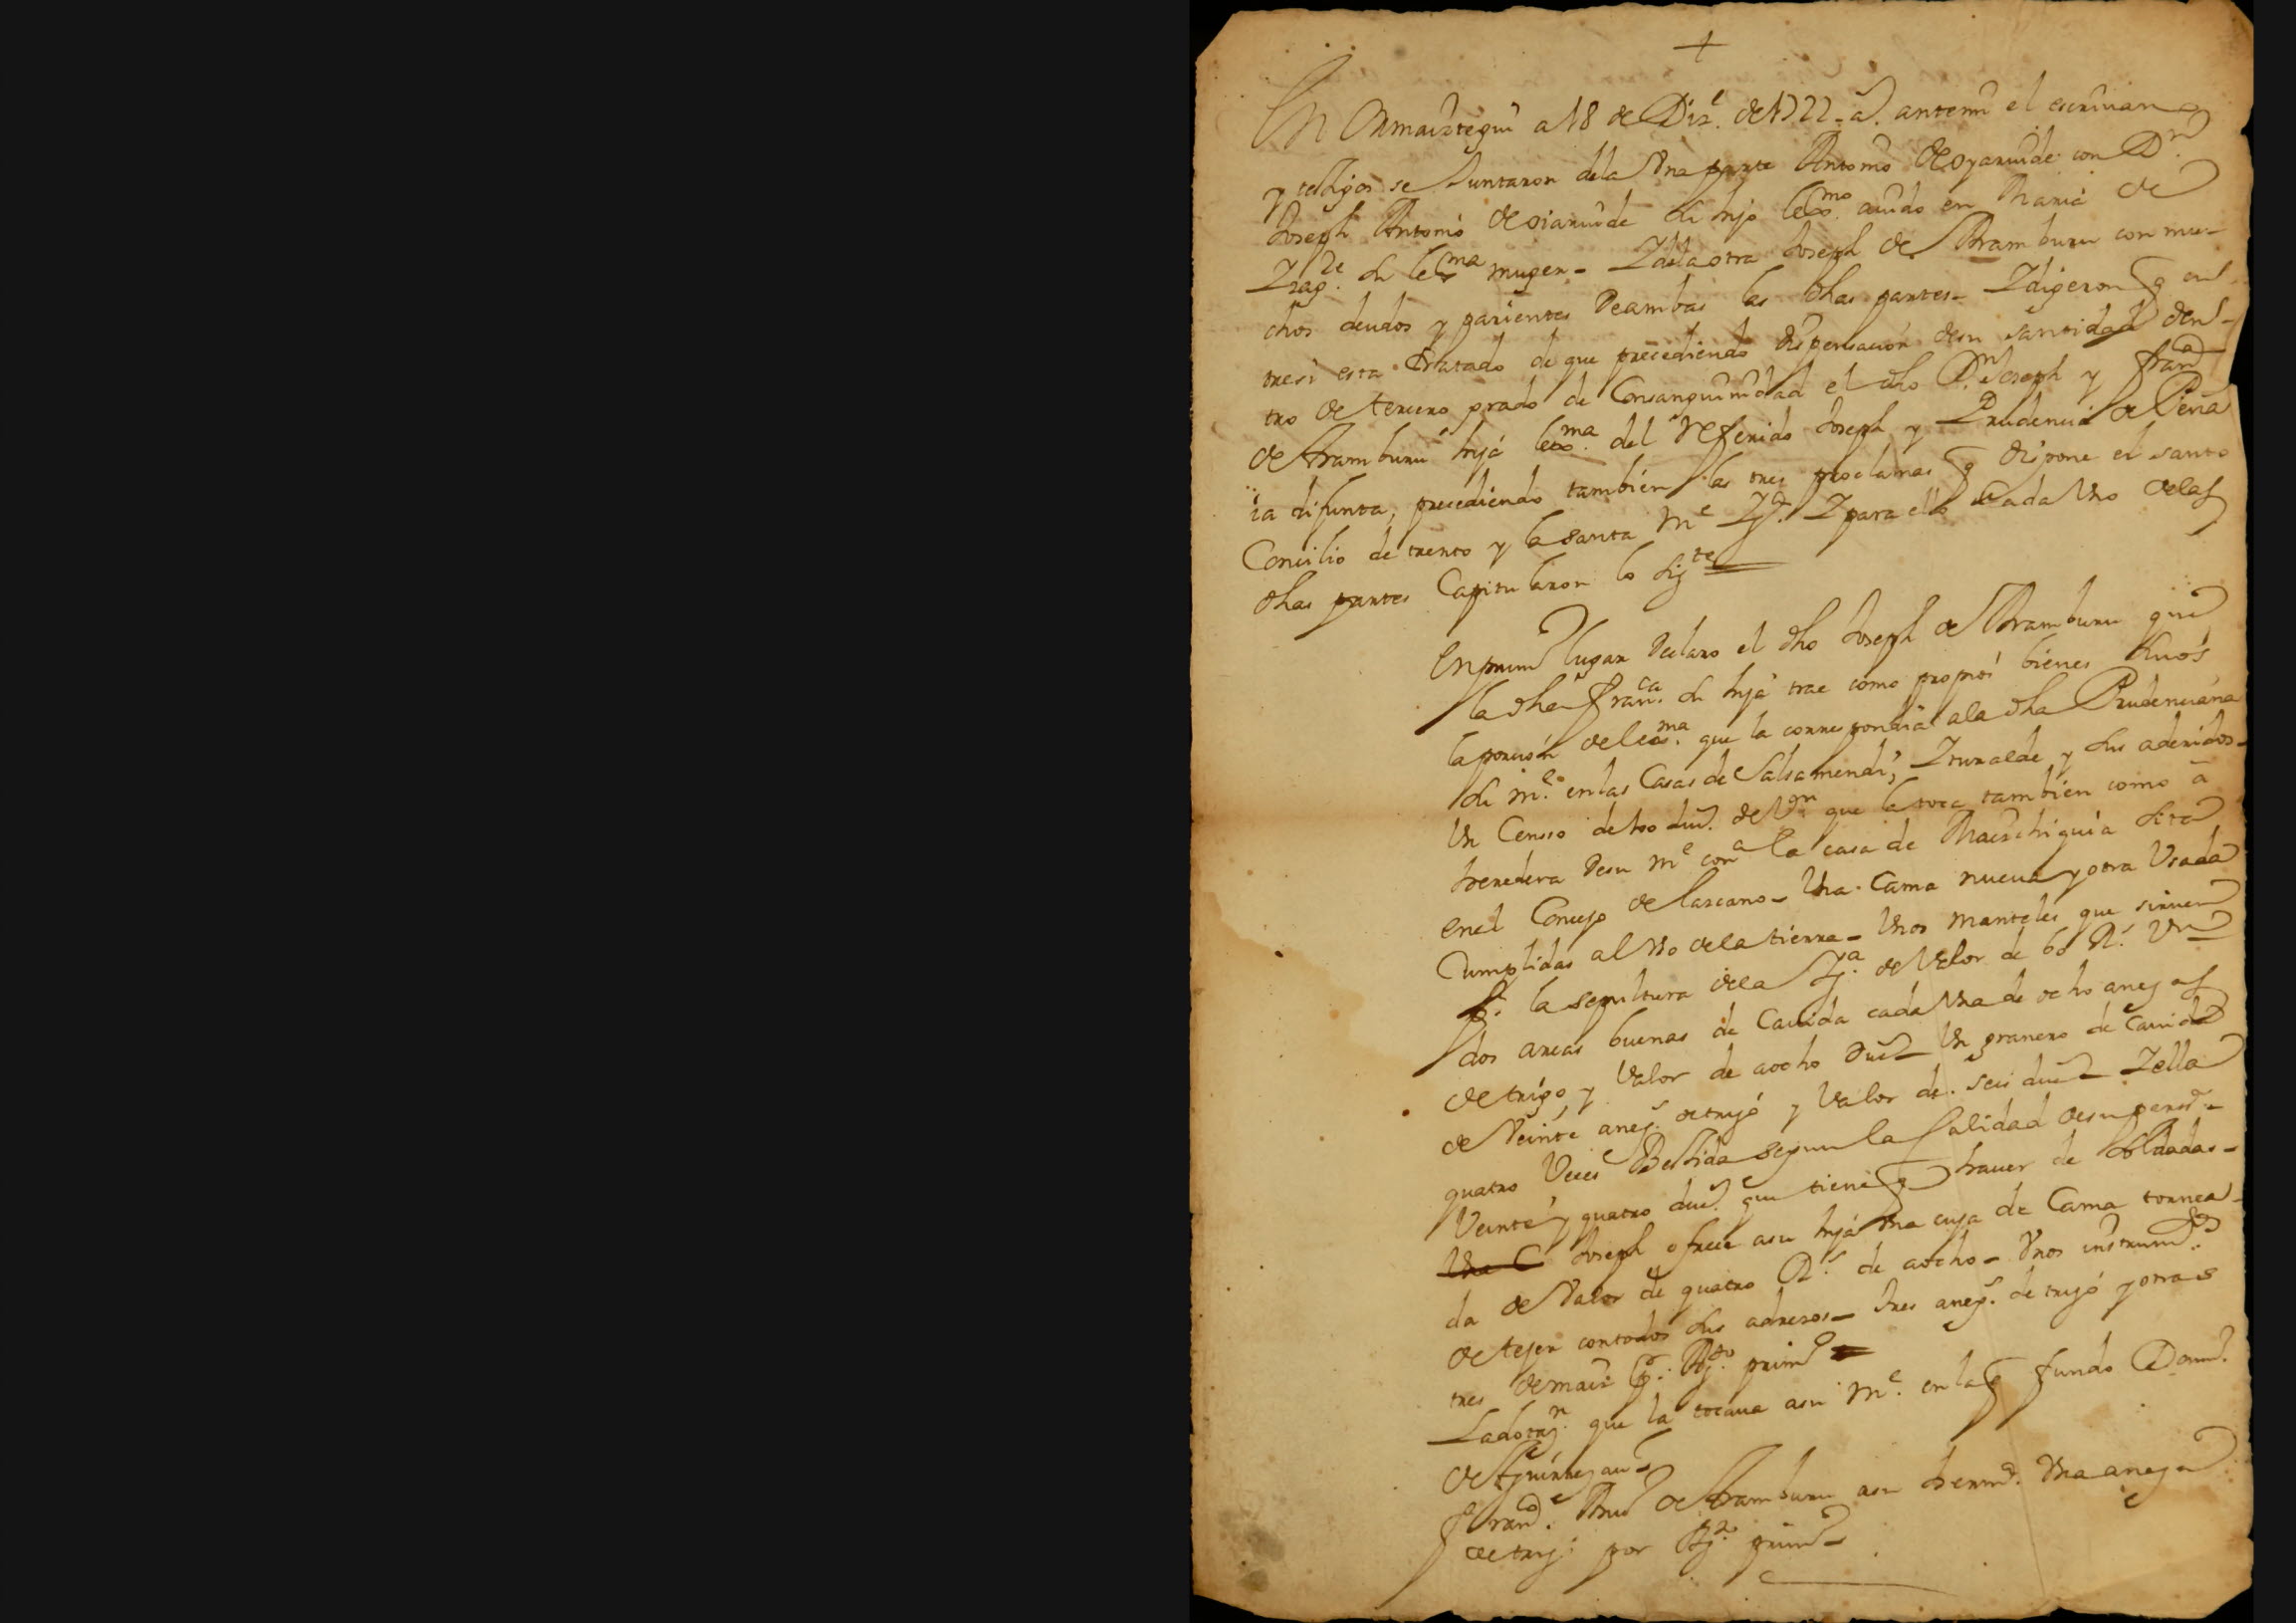 +
En Ormaiztegui a 18 de Diz.e de 1722 a.s ante mi el escriuano
y testigos se Juntaron dela Vna parte Antonio de oyaruide con D.n
Joseph Antonio de oiaruide su hijo lexmo. auido en Maria de
su lexma muger - Y dela otra Joseph de Aramburu con mu-
chos deudos y parientes de ambas las dhas partes - Y digeron q en
tresi esta tratado de que precediendo dispensacion de su santidad den-
tro de tercero grado de Consanguinidad el dho D.n Joseph y Fran.ca
de Aramburu hija lexma. del referido Joseph y Prudencia de
ia difunta, precediendo tambien las tres proclamas q dispone el santo
Concilio de trento y la santa M.e Yg.a Y para ello Cada Vno delas
dhas partes Capitularon lo sig.te
En primer lugar declaro el dho Joseph de Aramburu que
la dha Fran.ca su hija trae como propios bienes suos
la porcion de lexma. que la correspondia ala dha Prudenciana
su M.e en las Casas de Salsamendi, Yturralde y sus aderidos -
Un Censso de duc.s de V.on que la toca tambien como a
heredera de su M.e con.a la casa de sita
en el Concejo de lazcano - Una Cama nueua y otra Vsada
Cumplidas al Vso dela tierra - Vnos manteles que siruen
p.a la sepultura dela Yg.a de Valor de 60 R.s Vn
dos arcas buenas de Cauida cada Vna de ocho anegas
de trigo y Valor de aocho duc.s Un granero de Cauida
de Veinte aneg.s de trigo y Valor de seis duc.s Y ella
quatro Veces Bestida segun la Calidad de su perso.a
Veinte y quatro duc.s que tiene q hauer de soldadas -
Joseph ofrece asu hija Vna cuja de Cama tornea-
da de Valor de quatro R.s de aocho - Vnos instrum.tos
de tejer con todos sus adrezos - tres aneg.s de trigo y otras
tres de maiz p.r Ag.to prim.o
La dotaz.n que la tocaua asu M.e en la q fundo Dom.o
de
Fran.co de Aramburu asu herm.a Vna anega
de trigo por Ag.to prim.o